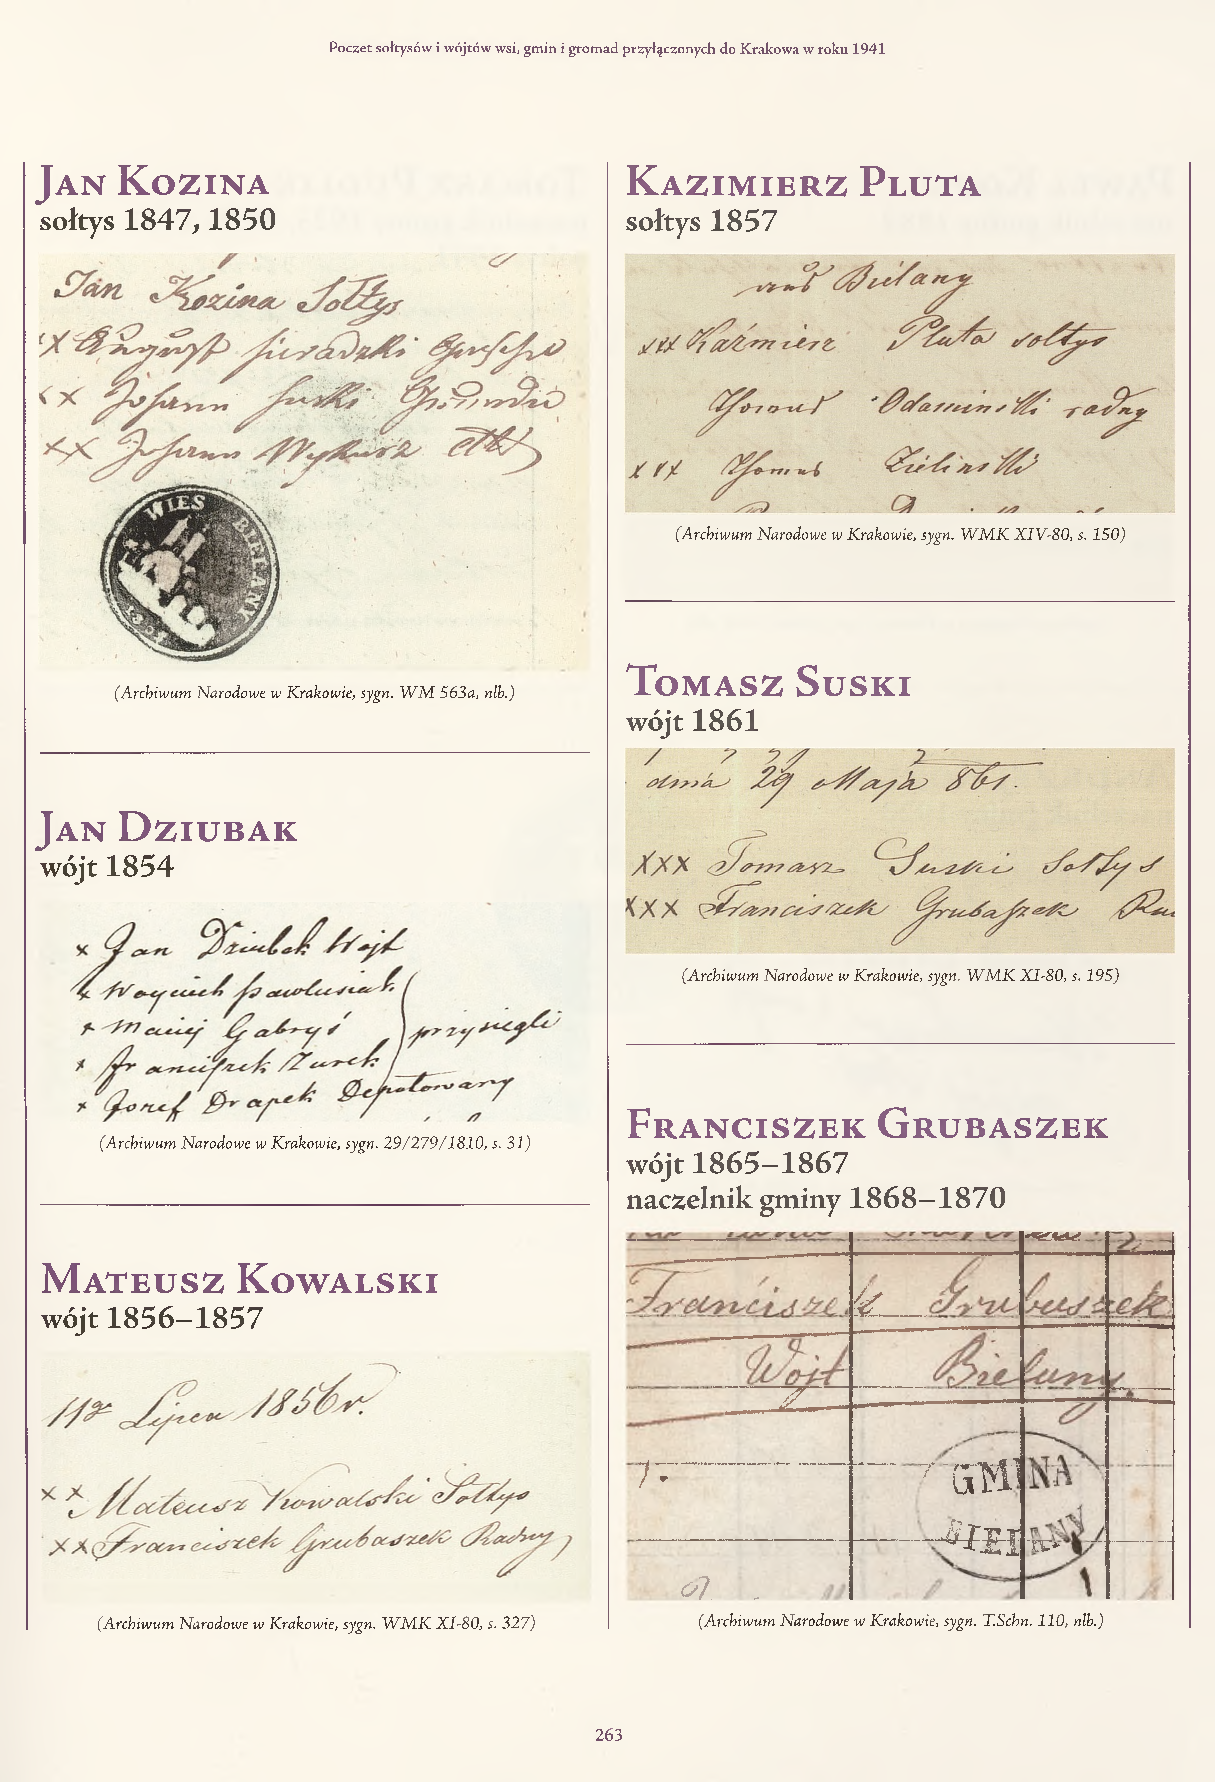 Poczet sołtysów i wójtów wsi, gmin i gromad przyłączonych do Krakowa w roku 1941
Jan Kozina
sołtys 1847, 1850
Jan Kozina Sołtys
XX August Sieradzki
XX Johann Suski
XX Johann Wykurz
WIES BIELANY
(Archiwum Narodowe w Krakowie, sygn. WM 563a, nlb.)
Jan Dziubak
wójt 1854
x Jan Dziubak Wojt
x Woyciech Pawlusiak
x Maciej Gabryś przysiegli
x Franciszek Zurek
x Jozef Drapek Deputowany
(Archiwum Narodowe w Krakowie, sygn. 29/279/1810, s. 31)
Mateusz Kowalski
wójt 1856–1857
11go Lipca 1856 r.
XX Mateusz Kowalski Sołtys
XX Franciszek Grubaszek Radny
(Archiwum Narodowe w Krakowie, sygn. WMK XI-80, s. 327)
Kazimierz Pluta
sołtys 1857
aus Bielany
xxx Kaźmierz Pluta soltys
Thomas radny
xxx Thomas Zielinski
(Archiwum Narodowe w Krakowie, sygn. WMK XIV-80, s. 150)
Tomasz Suski
wójt 1861
dnia 29 Maja 861.
XXX Tomasz Suski Sołtys
XXX Franciszek Grubaszek
(Archiwum Narodowe w Krakowie, sygn. WMK XI-80, s. 195)
Franciszek Grubaszek
wójt 1865–1867
naczelnik gminy 1868–1870
Franciszek Grubaszek
Wojt Bielany.
1.
GMINA
BIELANY
(Archiwum Narodowe w Krakowie, sygn. T.Schn. 110, nlb.)
263